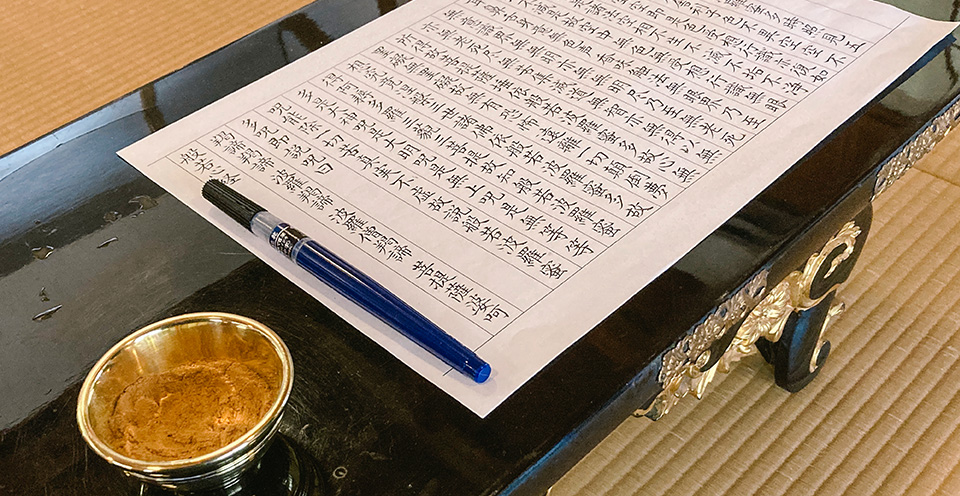 多時照見五
色不異空空不
受想行識亦復如
空相不生不滅不垢不淨
是故空中無色無受想行識無眼
意無色聲香味觸法無眼界乃至
無意識界無無明亦無無明盡乃至無老死
亦無老死盡無苦集滅道無智亦無得以無
所得故菩提薩埵依般若波羅蜜多故心無
罣礙無罣礙故無有恐怖遠離一切顛倒夢
想究竟涅槃三世諸佛依般若波羅蜜多故
得阿耨多羅三藐三菩提故知般若波羅蜜
多是大神呪是大明呪是無上呪是無等等
呪能除一切苦真実不虚故説般若波羅蜜
多呪即説呪曰
羯諦羯諦 波羅羯諦 波羅僧羯諦 菩提薩婆呵
般若心経